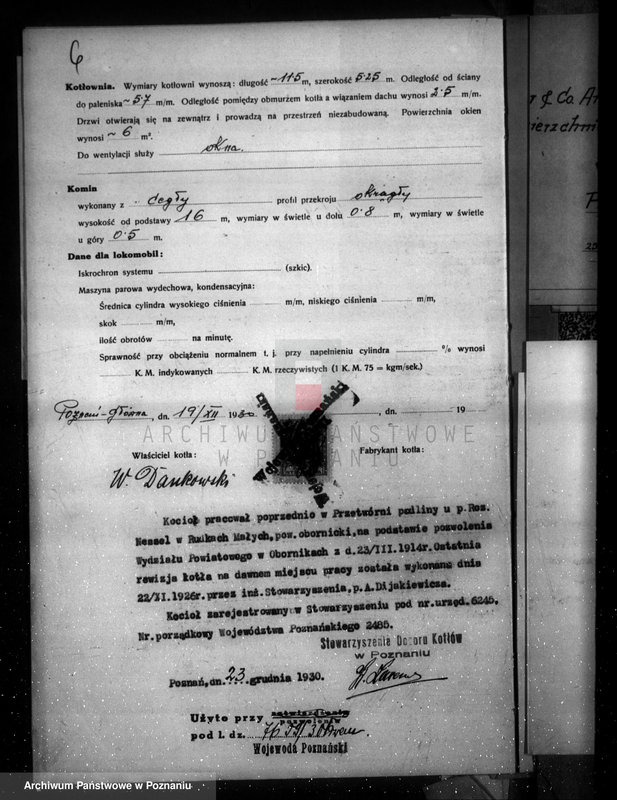 6
Kotłownia. Wymiary kotłowni wynoszą: długość ~11·5 m, szerokość 5·25 m. Odległość od ściany
do paleniska ~5·7 m/m. Odległość pomiędzy obmurzem kotła a wiązaniem dachu wynosi 2·5 m/m.
Drzwi otwierają się na zewnątrz i prowadzą na przestrzeń niezabudowaną. Powierzchnia okien
wynosi ~6 m².
Do wentylacji służy okna.
Komin
wykonany z cegły profil przekroju okrągły
wysokość od podstawy 16 m, wymiary w świetle u dołu 0·8 m, wymiary w świetle
u góry 0·5 m.
Dane dla lokomobil:
Iskrochron systemu (szkic).
Maszyna parowa wydechowa, kondensacyjna:
Średnica cylindra wysokiego ciśnienia m/m, niskiego ciśnienia m/m,
skok m/m,
ilość obrotów na minutę.
Sprawność przy obciążeniu normalnem t. j. przy napełnieniu cylindra % wynosi
K. M. indykowanych K. M. rzeczywistych (1 K. M. 75 = kgm/sek.)
Poznań-główna, dn. 19/XII 1930 , dn. 19
Właściciel kotła: Fabrykant kotła:
W. Dankowski
ARCHIWUM PAŃSTWOWE
W POZNANIU
Kocioł pracował poprzednio w Przetwórni padliny u p. Roz.
Nessel w Małych, pow. obornicki, na podstawie pozwolenia
Wydziału Powiatowego w Obornikach z d. 23/III.1914r. Ostatnia
rewizja kotła na dawnem miejscu pracy została wykonana dnia
22/XI.1926r. przez inż. Stowarzyszenia, p. A. Dijakiewicza.
Kocioł zarejestrowany w Stowarzyszeniu pod nr. urzęd. 6245,
Nr. porządkowy Województwa Poznańskiego 2485.
Stowarzyszenia Dozoru Kotłów
w Poznaniu
Poznań, dn. 23 grudnia 1930.
Użyto przy zatwierdzeniu
pozwoleniu
pod l. dz.
Wojewoda Poznański
r & Co. A
ierzchni
P
20
Archiwum Państwowe w Poznaniu